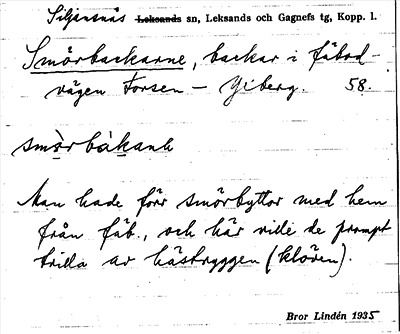 Siljansnäs Leksands sn, Leksands och Gagnefs tg, Kopp. l.
Smörbackarne, backar i fäbod-
vägen Forsen – Yiberg. 58.
smörbàkanɑ
Man hade förr smörbyttor med hem
från fäb., och här ville de prompt
trilla av hästryggen (klöven).
Bror Lindén 1935